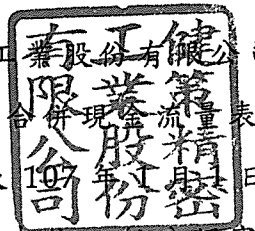 工業股份有限公
合併現金流量表
107 年 1 月 1 日
健第精密
工業股份
有限公司